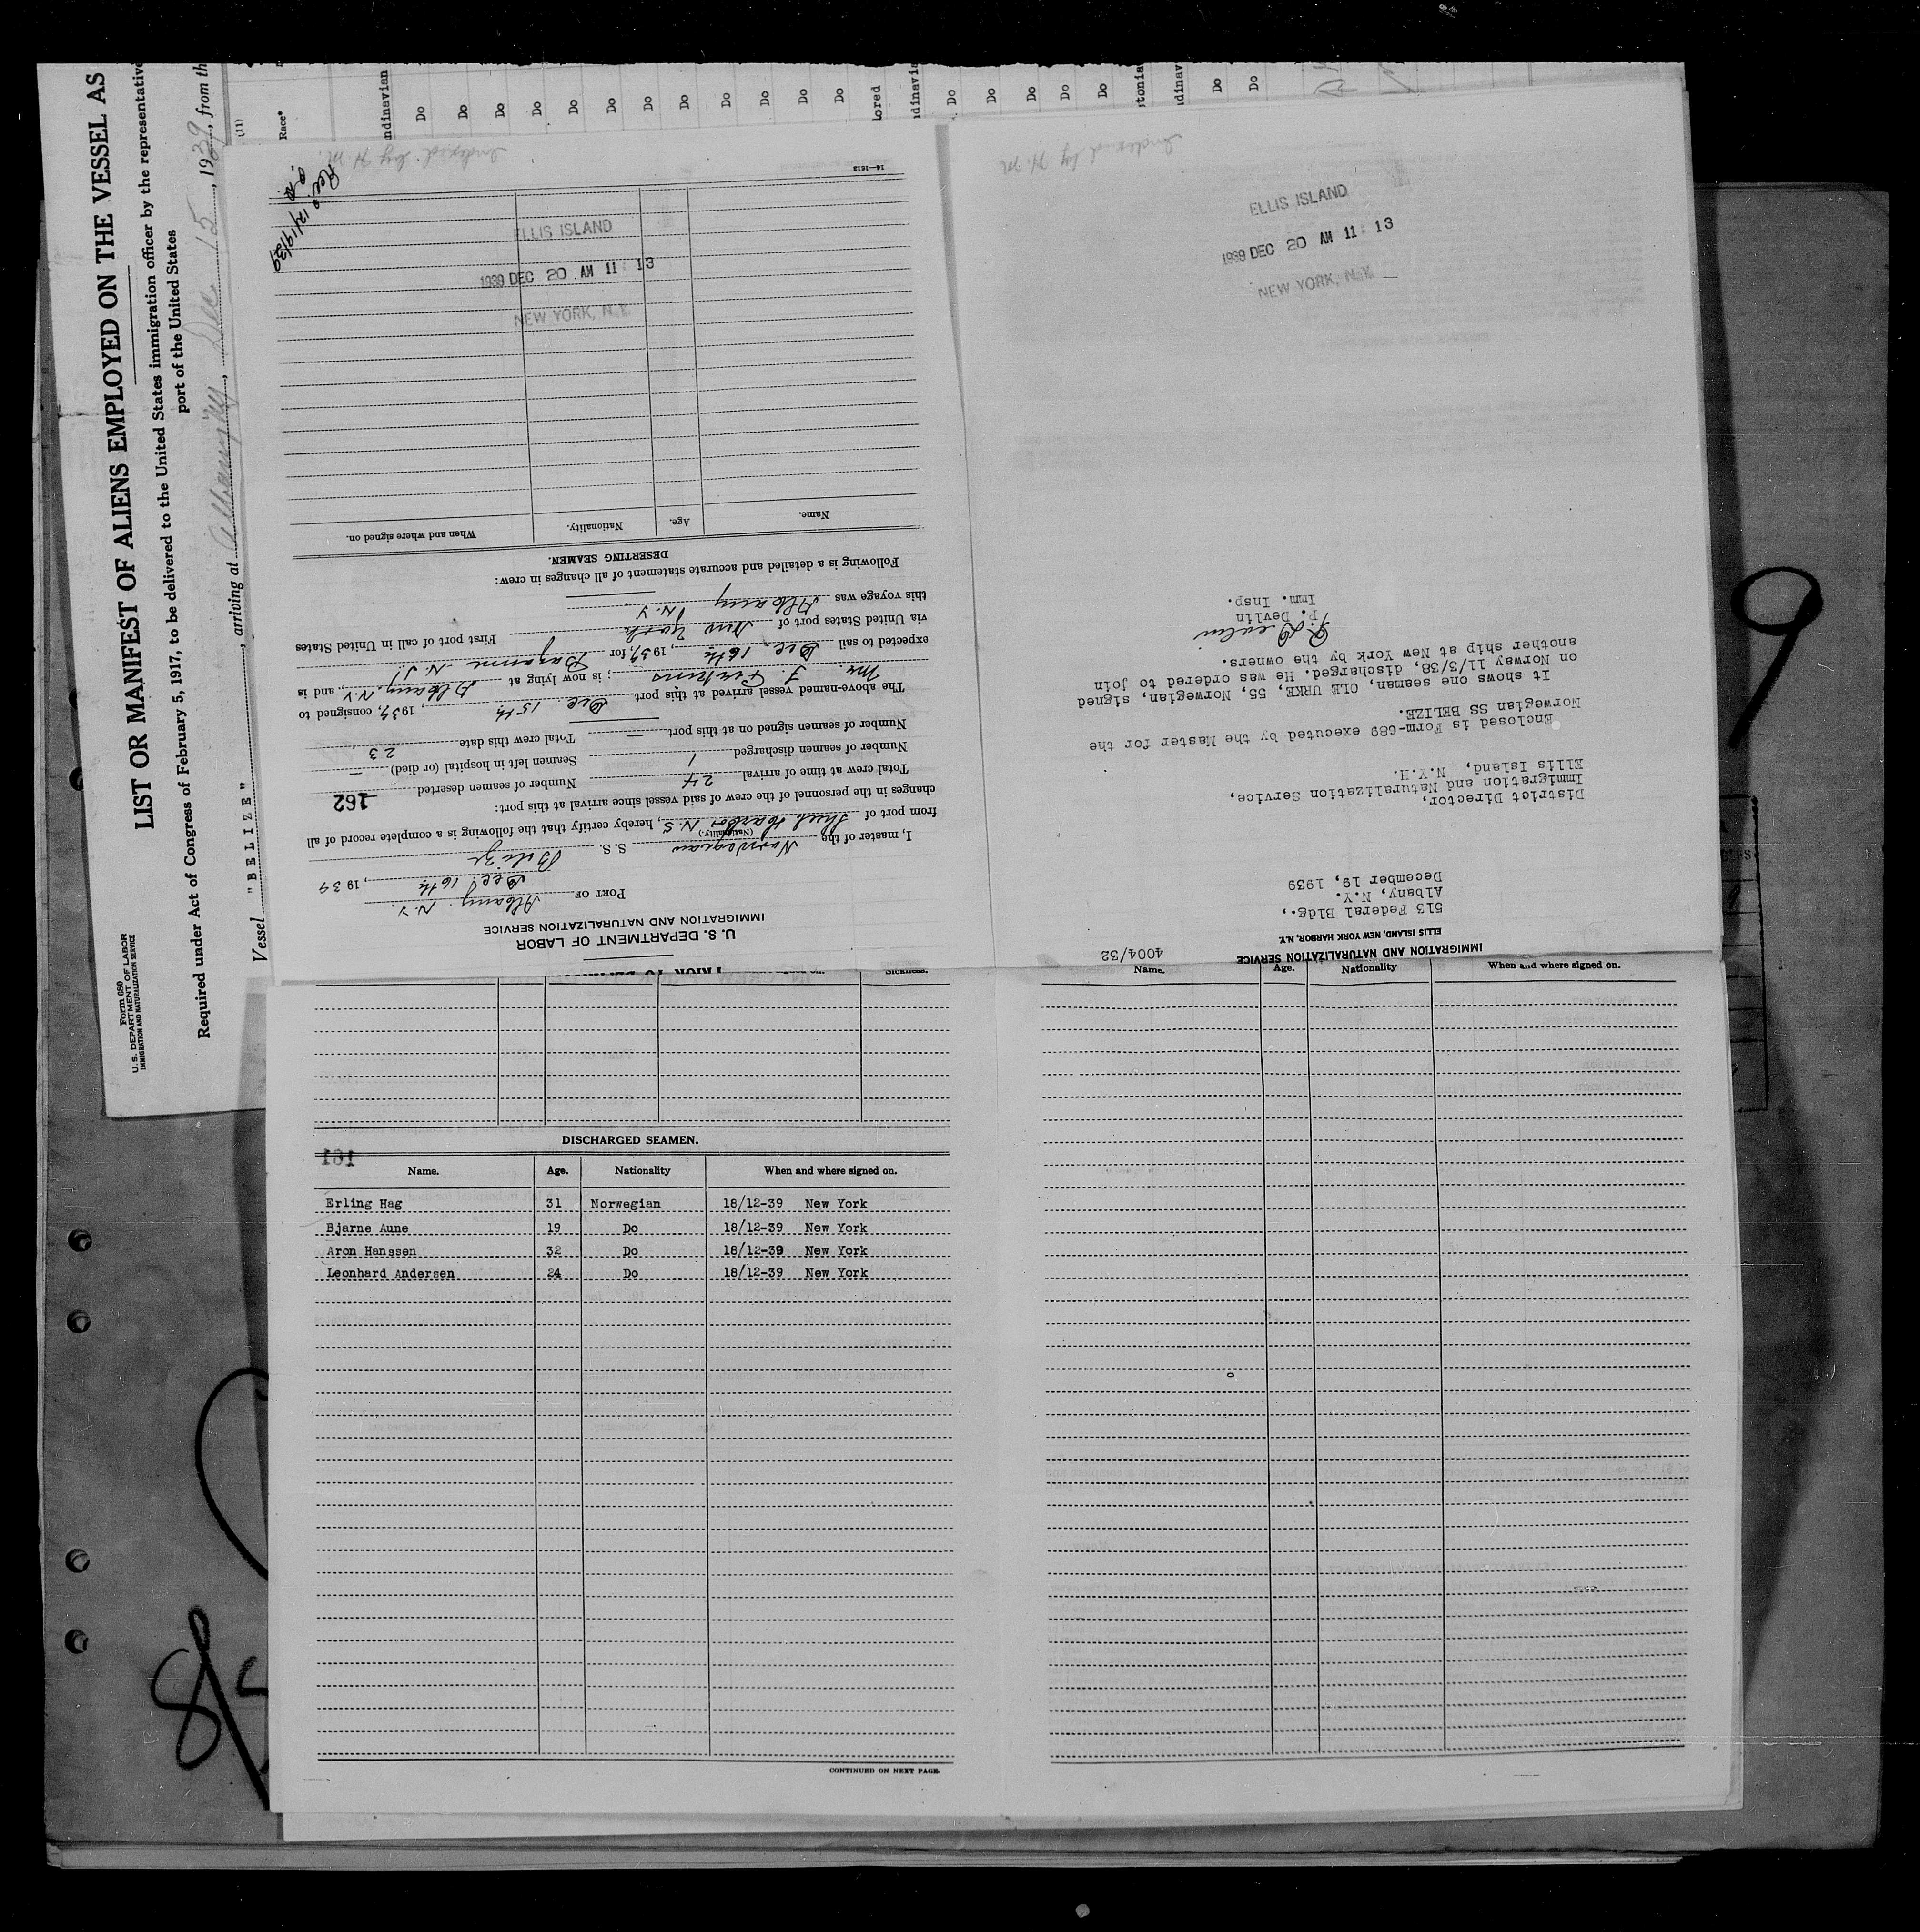 Form 680
U. S. DEPARTMENT OF LABOR
IMMIGRATION AND NATURALIZATION SERVICE
LIST OR MANIFEST OF ALIENS EMPLOYED ON THE VESSEL AS
Required under Act of Congress of February 5, 1917, to be delivered to the United States immigration officer by the representative
port of the United States
Vessel "BELIZE", arriving at Albany NY, Dec 15, 1939, from th
(11)
Race*
ndinavian
Do
Do
Do
Do
Do
Do
Do
Do
Do
Do
Do
Do
lored
ndinavia
Do
Do
Do
Do
Do
tonia
dinav
Do
Do
U. S. DEPARTMENT OF LABOR
IMMIGRATION AND NATURALIZATION SERVICE
PORT OF Albany N.Y.
Dec. 16th, 1939
I, master of the Norwegian S. S. Belize
(Nationality.)
from port of Sheet Harbor N.S., hereby certify that the following is a complete record of all
changes in the personnel of the crew of said vessel since arrival at this port:
162
Total crew at time of arrival 24 Number of seamen deserted
Number of seamen discharged 1 Seamen left in hospital (or died) —
Number of seamen signed on at this port — Total crew this date 23
The above-named vessel arrived at this port Dec. 15th, 1939, consigned to
Mr. J. ; is now lying at Albany N.Y., and is
expected to sail Dec. 16th, 1939, for Bayonne N.J.
via United States port of New York First port of call in United States
this voyage was Albany N.Y.
Following is a detailed and accurate statement of all changes in crew:
DESERTING SEAMEN.
Name. Age. Nationality. When and where signed on.
ELLIS ISLAND
1939 DEC 20 AM 11 : 13
NEW YORK, N.Y.
Rec'd 12/19/39
P.D.
14—1613
Indexed by H.M.
IMMIGRATION AND NATURALIZATION SERVICE
ELLIS ISLAND, NEW YORK HARBOR, N.Y.
4004/32
513 Federal Bldg.,
Albany, N.Y.
December 19, 1939
District Director,
Immigration and Naturalization Service,
Ellis Island, N.Y.H.
Enclosed is Form-689 executed by the Master for the
Norwegian SS BELIZE.
It shows one seaman, OLE URKE, 55, Norwegian, signed
on Norway 11/3/38, discharged. He was ordered to join
another ship at New York by the owners.
P. Devlin
P. Devlin
Imm. Insp.
ELLIS ISLAND
1939 DEC 20 AM 11 : 13
NEW YORK, N.Y.
Indexed by H.M.
Sickness.
DISCHARGED SEAMEN.
161
Name. Age. Nationality When and where signed on.
Erling Hag 31 Norwegian 18/12-39 New York
Bjarne Aune 19 Do 18/12-39 New York
Aron Hanssen 32 Do 18/12-39 New York
Leonhard Andersen 24 Do 18/12-39 New York
CONTINUED ON NEXT PAGE.
Name. Age. Nationality When and where signed on.
9
8